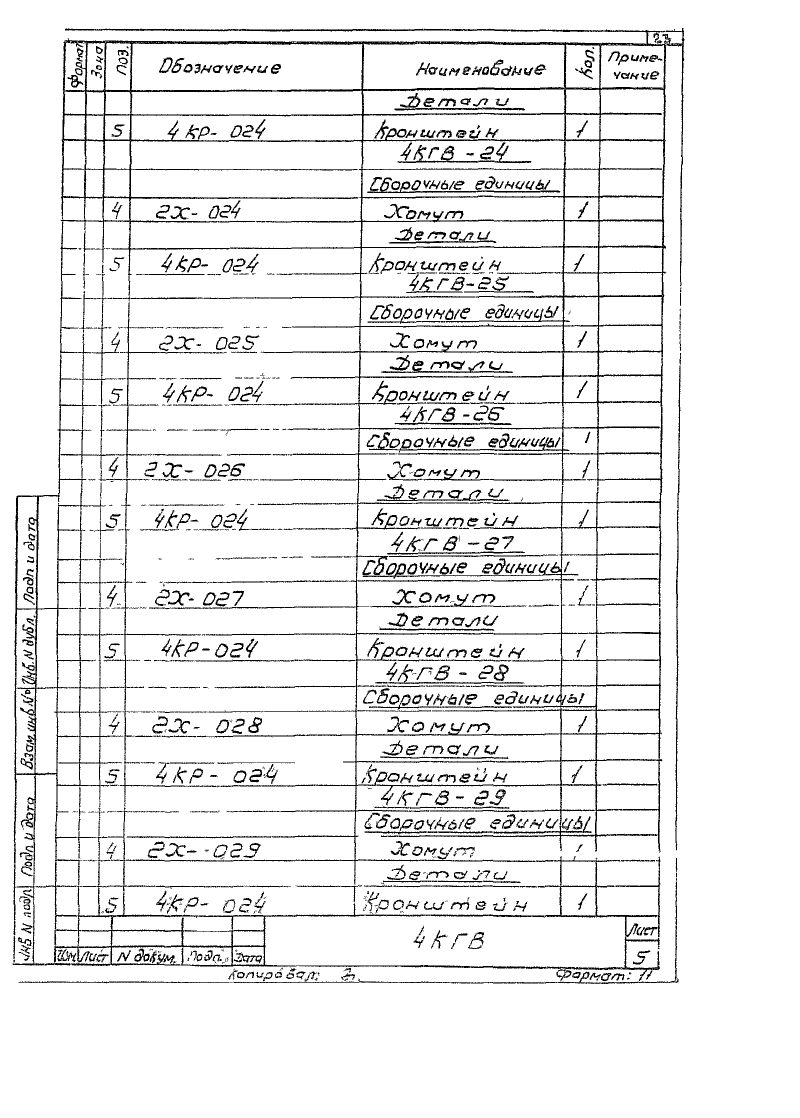 23
Формат Зона Поз. Обозначение Наименование Кол. Приме-
чание
Детали
5 4КР-024 Кронштейн 1
4КГВ-24
Сборочные единицы
4 2Х-024 Хомут 1
Детали
5 4КР-024 Кронштейн 1
4КГВ-25
Сборочные единицы
4 2Х-025 Хомут 1
Детали
5 4КР-024 Кронштейн 1
4КГВ-26
Сборочные единицы 1
4 2Х-026 Хомут 1
Детали
5 4КР-024 Кронштейн 1
4КГВ-27
Сборочные единицы
4 2Х-027 Хомут 1
Детали
5 4КР-024 Кронштейн 1
4КГВ-28
Сборочные единицы
4 2Х-028 Хомут 1
Детали
5 4КР-024 Кронштейн 1
4КГВ-29
Сборочные единицы
4 2Х-029 Хомут 1
Детали
5 4КР-024 Кронштейн 1
Инв N подл. Подп и дата Взам инв № Инв. N дубл. Подп и дата
Изм Лист N докум. Подп. Дата
4КГВ
Лист
5
Копировал: Формат: 11